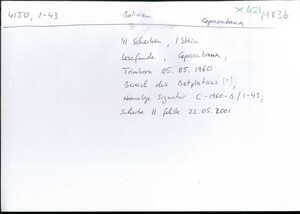 4150, 1-43 Bolivien Copacabana
41 Scherben, 1 Stein
Lesefunde, Copacabana,
Trimborn 05.05.1960
Bereich des Bootplatzes [?];
Ehemalige Signatur C-1960-A/1-43;
Scherbe 11 fehlt 22.05.2001